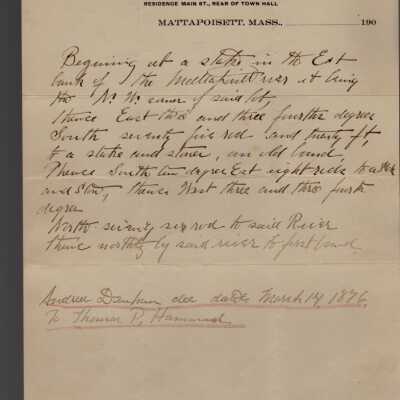 RESIDENCE MAIN ST., REAR OF TOWN HALL
MATTAPOISETT, MASS., 190
Begining at a stake in the Est
bank of the river it being
the N. W. corner of said lot,
thence East three and three fourths degree
South seventy five rod and twenty ft,
to a stake and stones, an old bound,
Thence South degree Est eight rods to a
and thence West three and three fourth
degree
North seventy six rod to said River
thence northly by said river to first bound.
Dunham dec dated March 14, 1876,
To Thomas P. Hammond